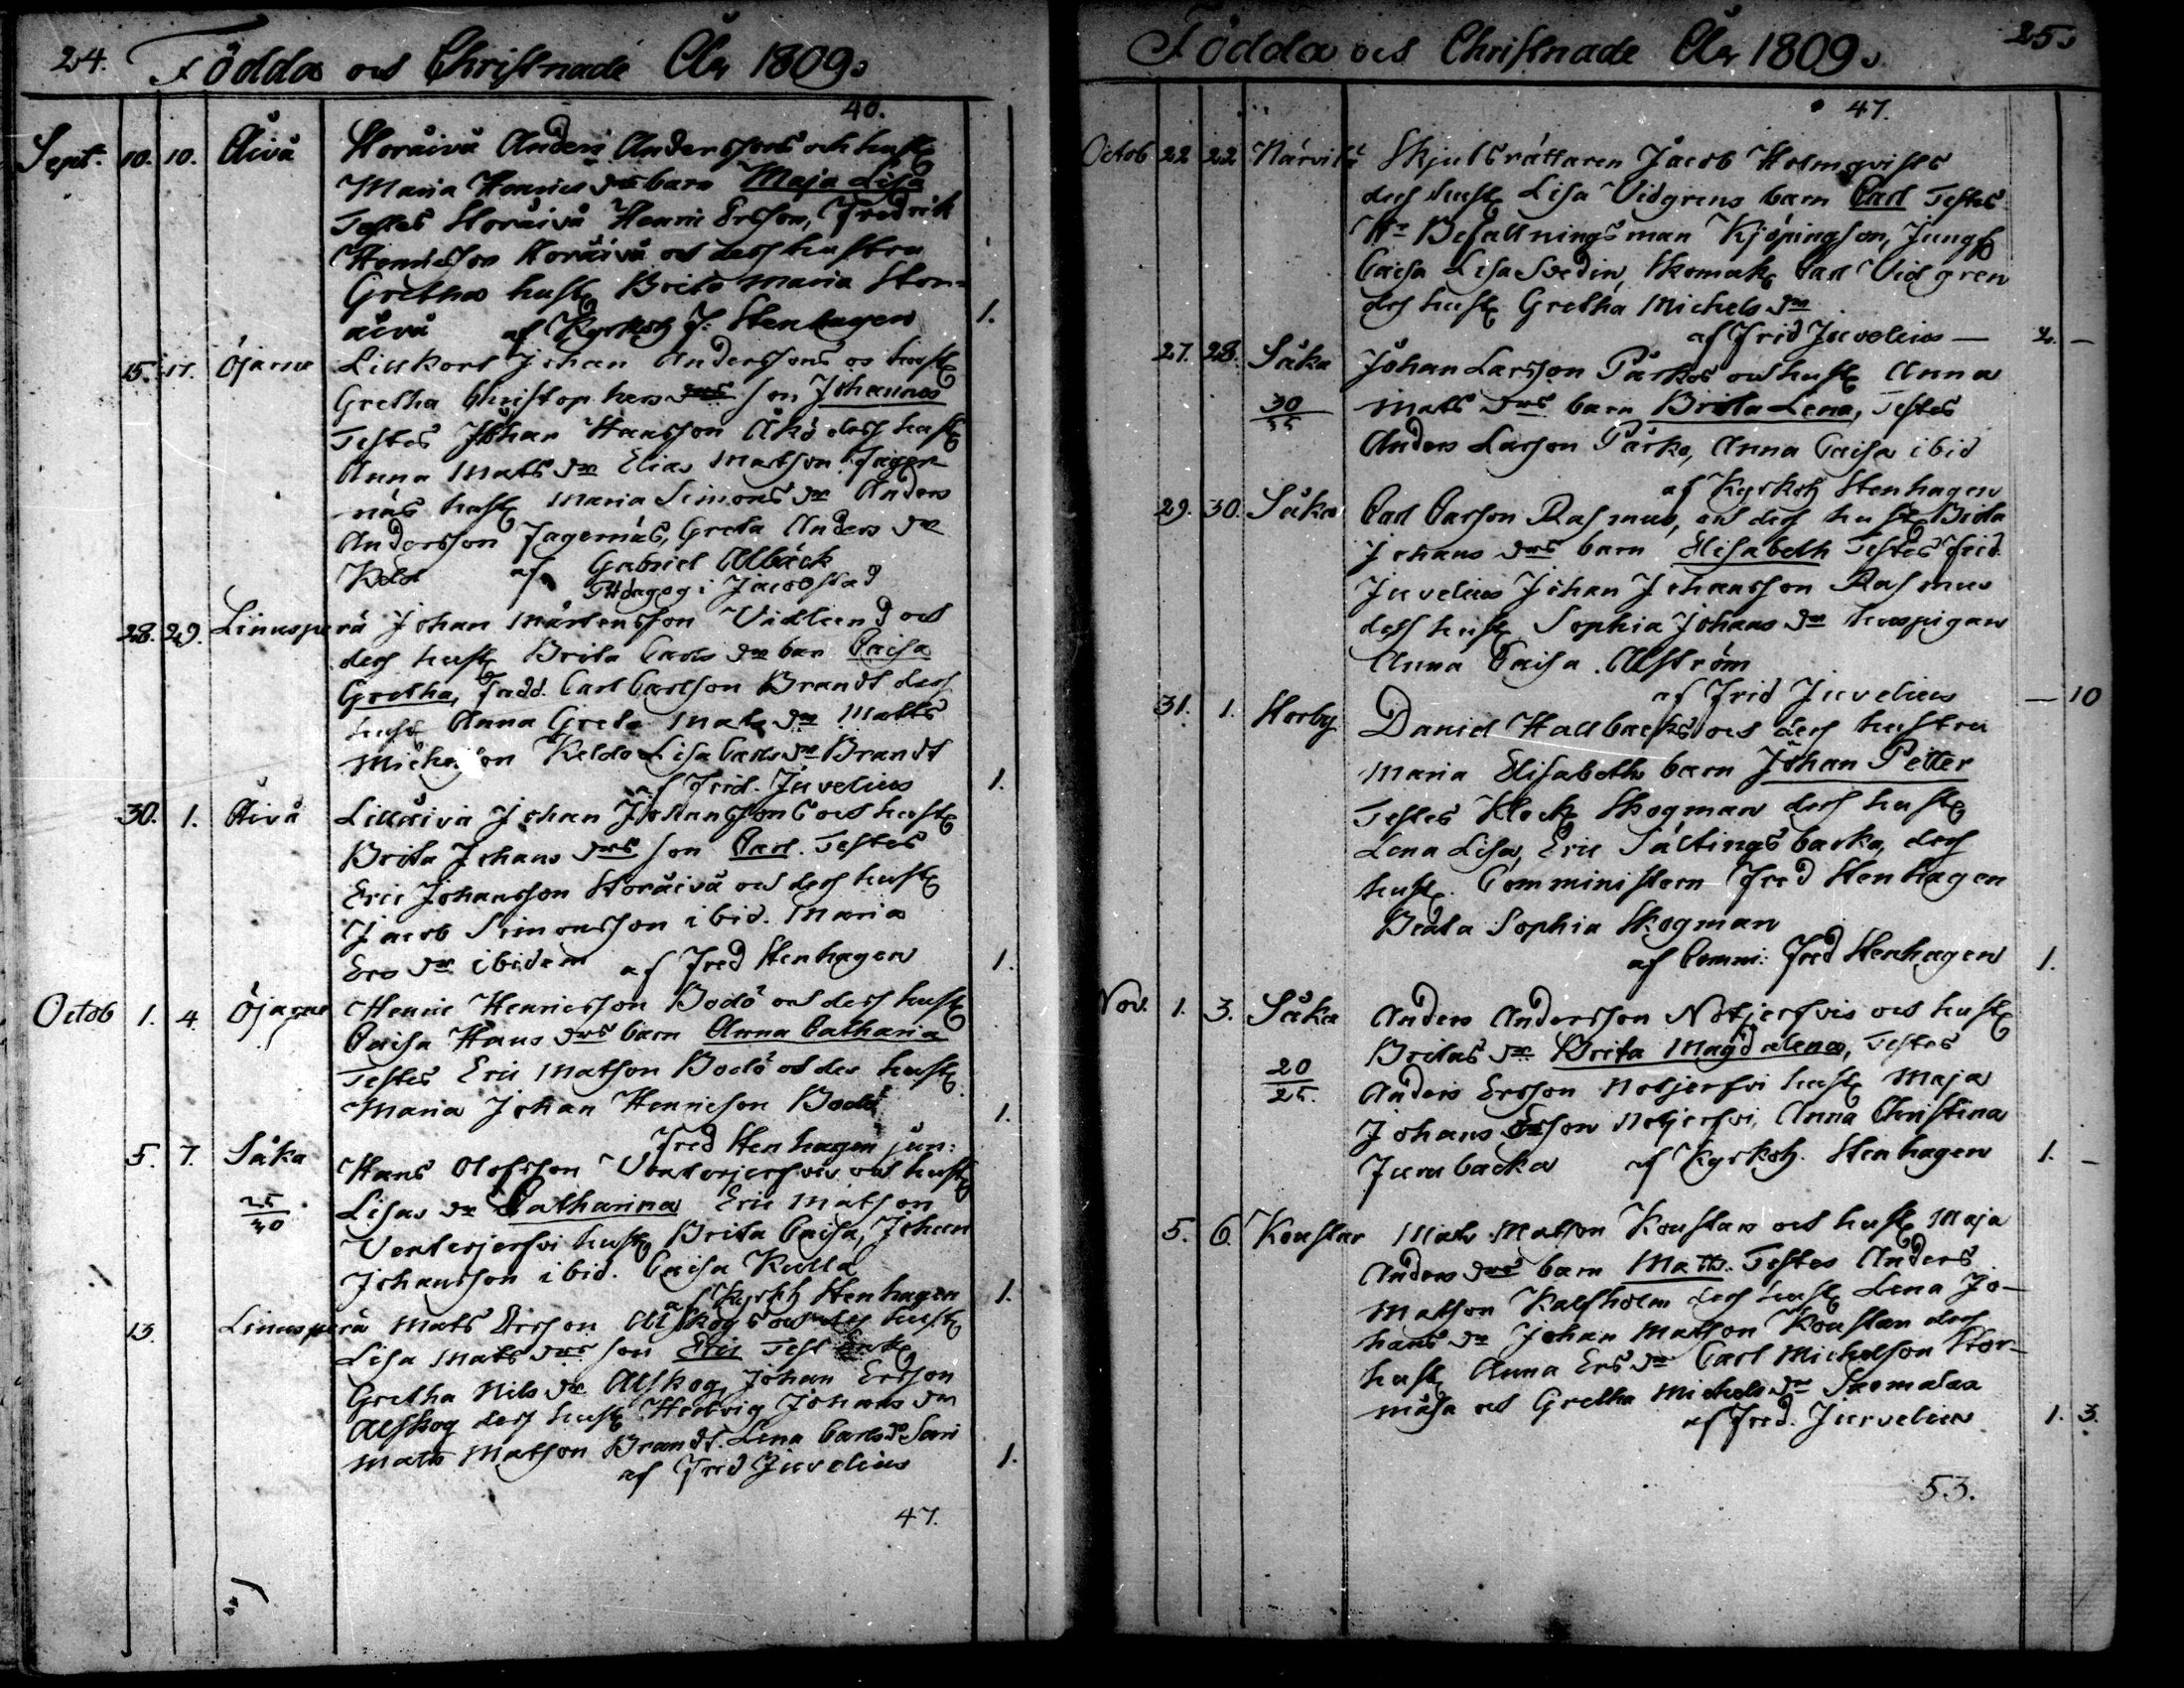 24. Födda och Christnade År 1809.
40.
Sept. 10. 10. Åivå Storåivå Anders Anderssons och hust
Maria Henrics drs barn Maja Lisa
Testes Storåivå Henric Ersson, Fredrik
Henricsson Storåivå och dess hustru
Gretha hust Brita Maria Stor=
åivå af Kyrkoh J: Stenhagen 1.
15. 17. Öjarne Lillkort Johan Anderssons oc hust
Gretha Christophers drs son Johannes
Testes Johan Hansson Åkö dess hust
Anna Mats dr Elias Matsson Jager
näs hust Maria Simons dr Anders
Andersson Jagernäs, Greta Anders dr
af Gabriel Ahlbäck
Pædagog i Jacobstad
28. 29. Linusperä Johan Mårtensson Vidlund och
dess hust Brita Carls dr barn Caisa
Gretha, Fadd. Carl Carlson Brandt dess
hust Anna Greta Mats dr Matts
Keldo Lisa Carls dr Brandt
af Frid. Juvelius 1.
30. 1. Åivå Lillåivå Johan Johanssons och hust
Brita Johans drs son Carl. Testes
Eric Johansson Storåivå och dess hust
Jacob Simonsson ibid. Maria
Ers dr ibidem af Fred Stenhagen 1.
Octob 1. 4. Öjarne Henric Henricsson Bodö och dess hust
Caisa Hans drs barn Anna Catharia
Testes Eric Matson Bodö och des hust
Maria Johan Henricson Bodö 1.
Fred Stenhagen jun:
5. 7. Såka Hans Olofsson Venterjerfvis och hust
25/30 Lisas dr Catharina Eric Matson
Venterjerfvi hust Brita Caisa, Johan
Johansson ibid. Caisa Kulla
af Kyrkh Stenhagen 1.
13. Linusperä Mats Ersson Alskogs och des hust
Lisa Mats drs son Eric Test Enk
Gretha Nils dr Alskog, Johan Ersson
Alskog dess hust Hedvig Johans dr
Mats Matson Brandt. Lena Carls dr Sari
af Frid Juvelius 1.
47.
Födda och Christnade År 1809. 25.
47.
Octob 22 22 Närvilä Skjutsrättaren Jacob Holmqvists
dess hust Lisa Vidgrens barn Carl Testes
Hr Befallningsman Kjöpingson, Jungf
Caisa Lisa Svedin, Skomak Carl Vidgren
des hust Gretha Michels dr
af Frid Juvelius — 2. —
27. 28. Såka Johan Larsson Pärkos och hust Anna
30/25 Mats drs barn Brita Lena, Testes
Anders Larson Pärko, Anna Caisa ibid
af Kyrkoh Stenhagen
29. 30. Såka Carl Carson Rasmus, och dess hust Brita
Johans drs barn Elisabeth Testes Frid.
Juvelius Johan Johansson Rasmus
dess hust Sophia Johans dr huspigan
Anna Caisa Ahlström
af Frid Juvelius — 10
31. 1. Storby Daniel Hallbacks och dess hustru
Maria Elisabeths barn Johan Petter
Testes Klock Skogman dess hust
Lena Lisa, Eric Sältingsbacka, dess
hust. Comministern Fred Stenhagen
Beata Sophia Skogman
af Comm: Fred Stenhagen 1.
Nov. 1. 3. Såka Anders Andersson Nötjerfvis och hust
Britas dr Brita Magdalena, Testes
20/25. Anders Ersson Nötjerfvi hust Maja
Johans Ersson Nötjerfvi, Anna Christina
af Kyrkoh. Stenhagen 1. —
5. 6. Konstar Mats Matson Konstars och hust Maja
Anders drs barn Matts. Testes Anders
Matson Kalfholm dess hust Lena Jo-
hans dr Johan Matson Konstar dess
hust Anna Ers dr Carl Michelson Stor=
måsa och Gretha Michels dr
af Fred. Juvelius 1. 3.
53.